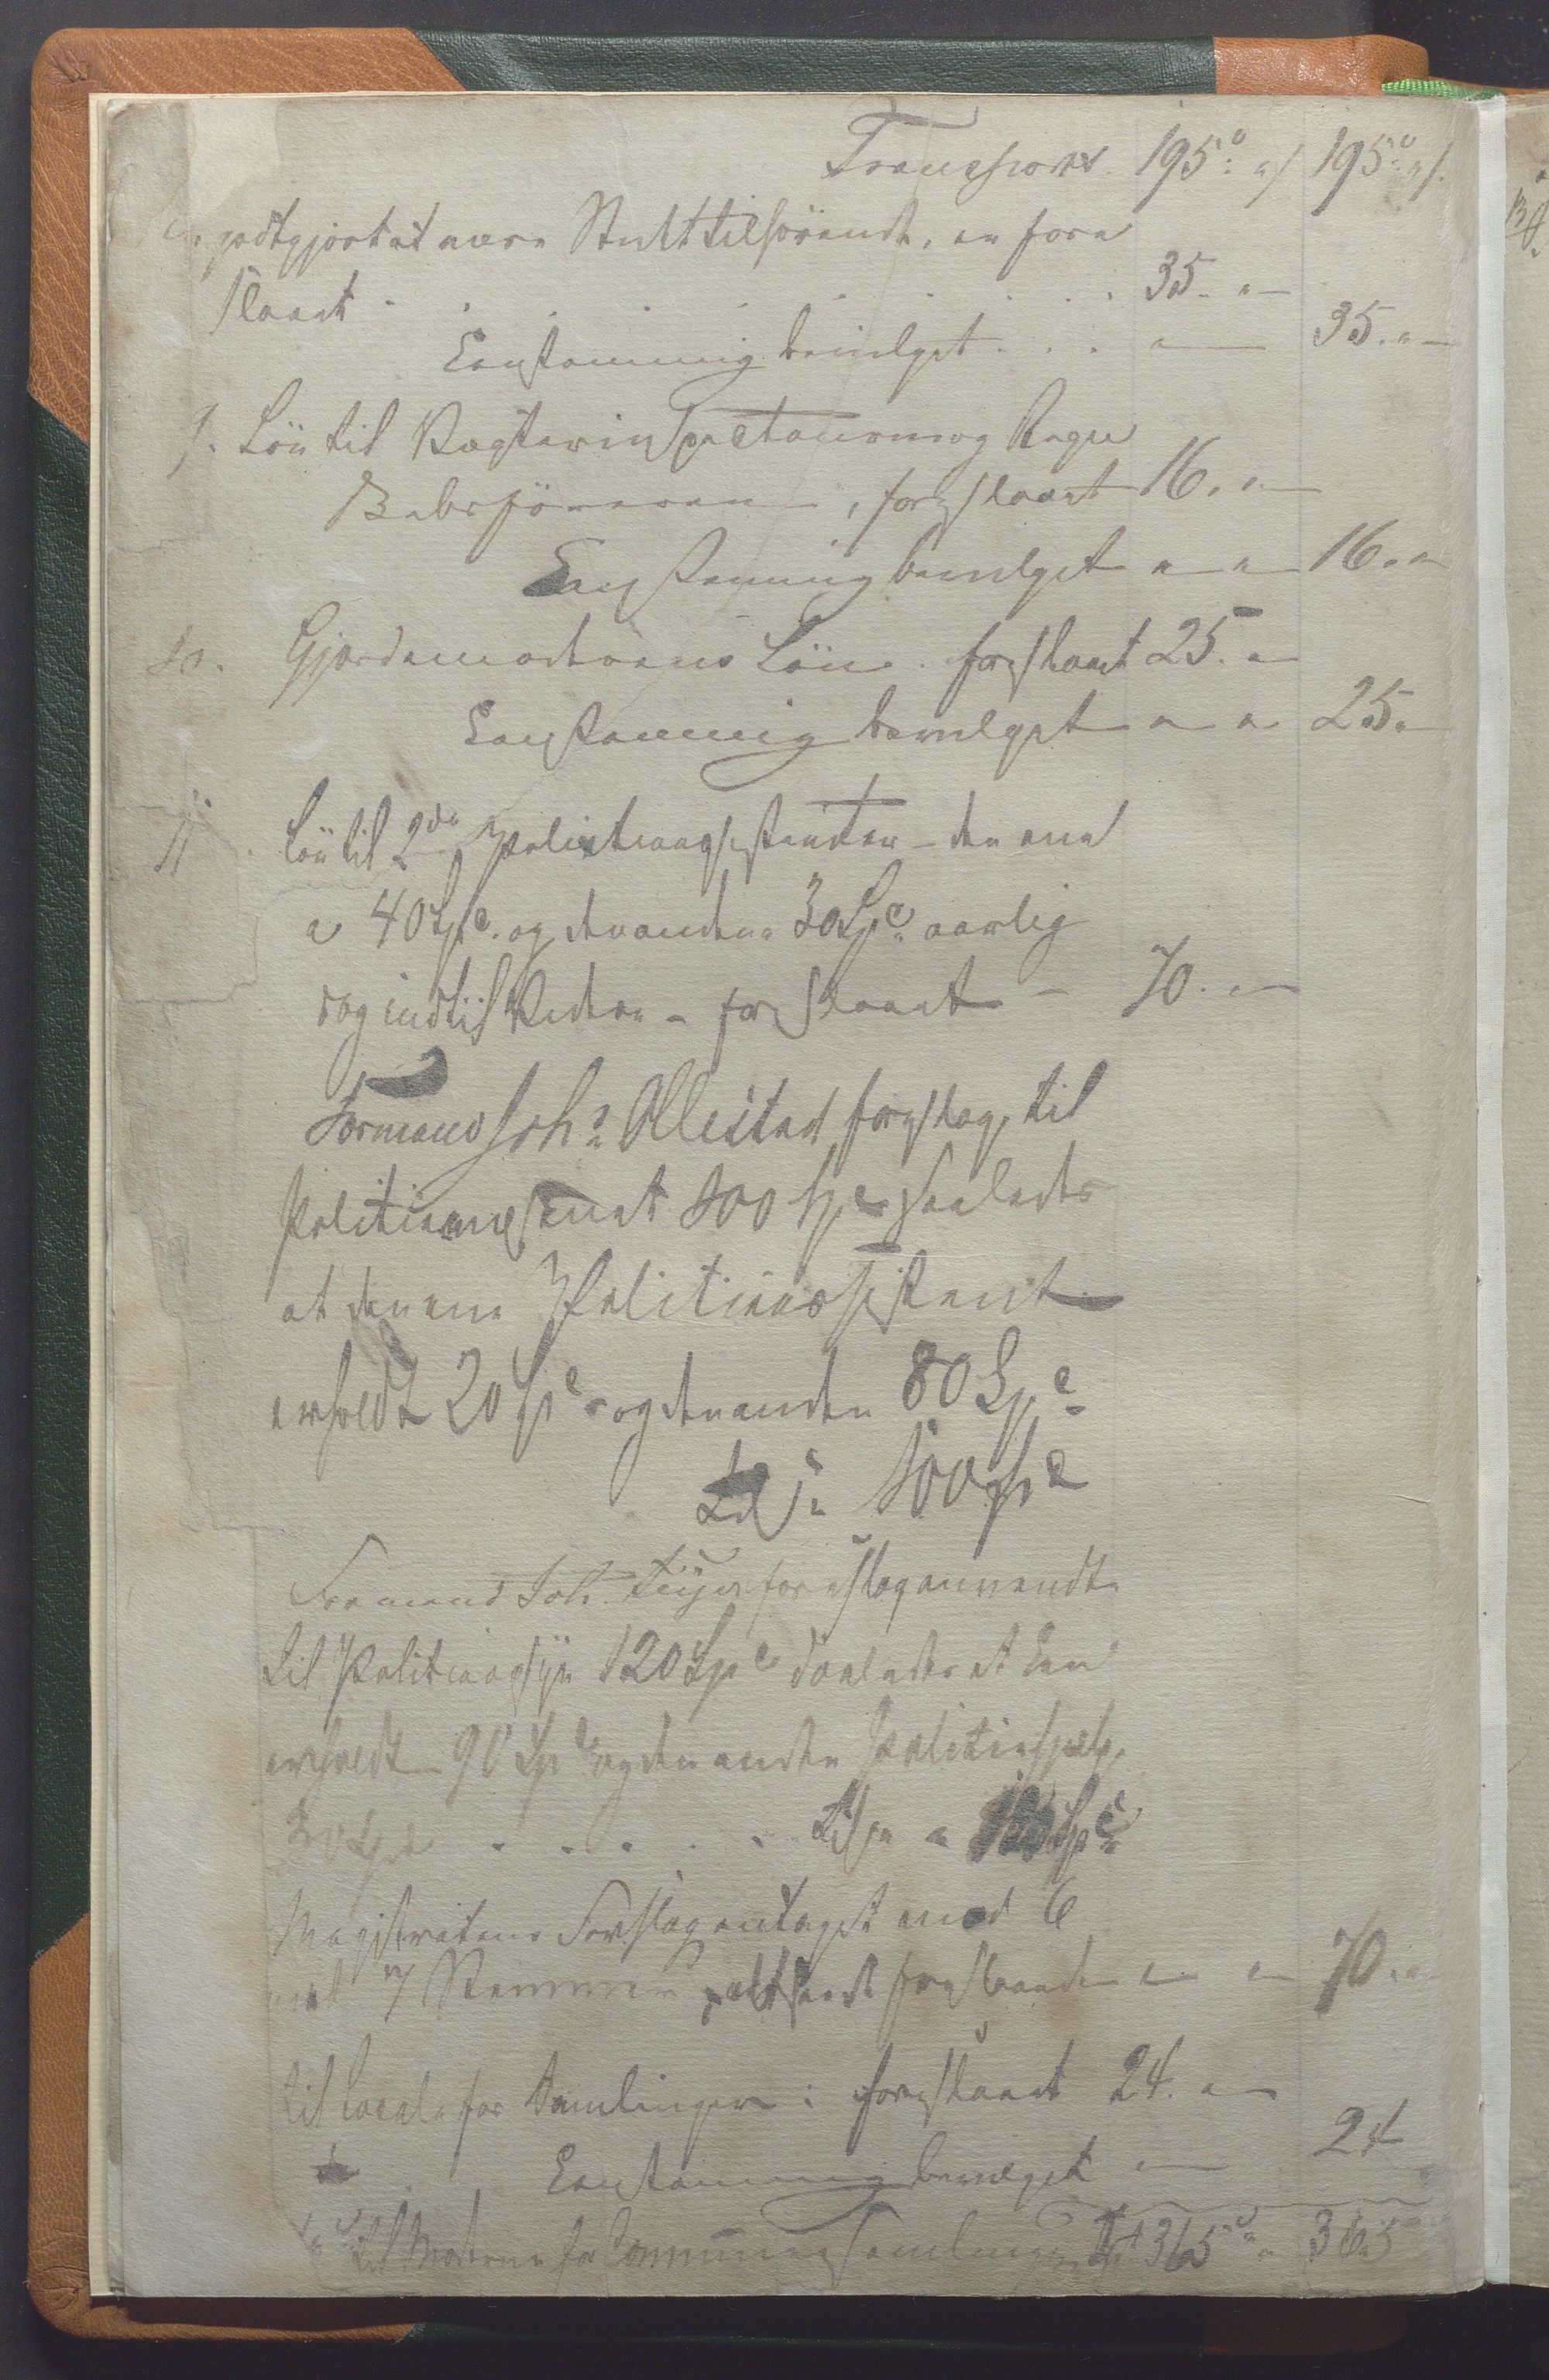 Transport. 195 195
godtgjort at være tilhörende, en fore
slaaet . . . . . . 35. "
Eenstemmig bevilget . . . " 35. "
9. Lön til Vægterinspecteuren og
, foreslaaet 16. "
Eenstemmig bevilget " " 16. "
10. Gjordemoderens Lön. foreslaaet 25. "
Eenstemmig bevilget " " 25 "
11. Lön til 2de Politieassistenter – den ene
a 40 Spe. og den anden 30 Spe aarlig
indtil Videre – foreslaaet – 70. "
Formand Johs Ollestad foreslog, til
Politievæsenet 100 Spe saaledes
at den ene Politieassistent
erholdt 20 Spe og den anden 80 Spe
100 Spe
Formand Joh. foreslog anvendt
til Politieopsyn 120 Spe saaledes at Een
erholdt 90 Spe og den anden
30 Spe . . . . . 120 Spe
Magistratens Forslag antaget med 6
mod 7 Stemmer, foreslaaede " " 70. "
til Locale for Samlinger: foreslaaet 24. "
Eenstemmig bevilget " 24
til for Communens 365 " 365